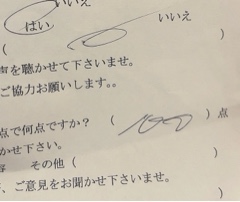 いいえ
はい
いいえ
(
声を聴かせて下さいませ。
ご協力お願いします。。
点で何点ですか？ ( 100 ) 点
かせ下さい。
その他 ( )
、ご意見をお聞かせ下さいませ。
)